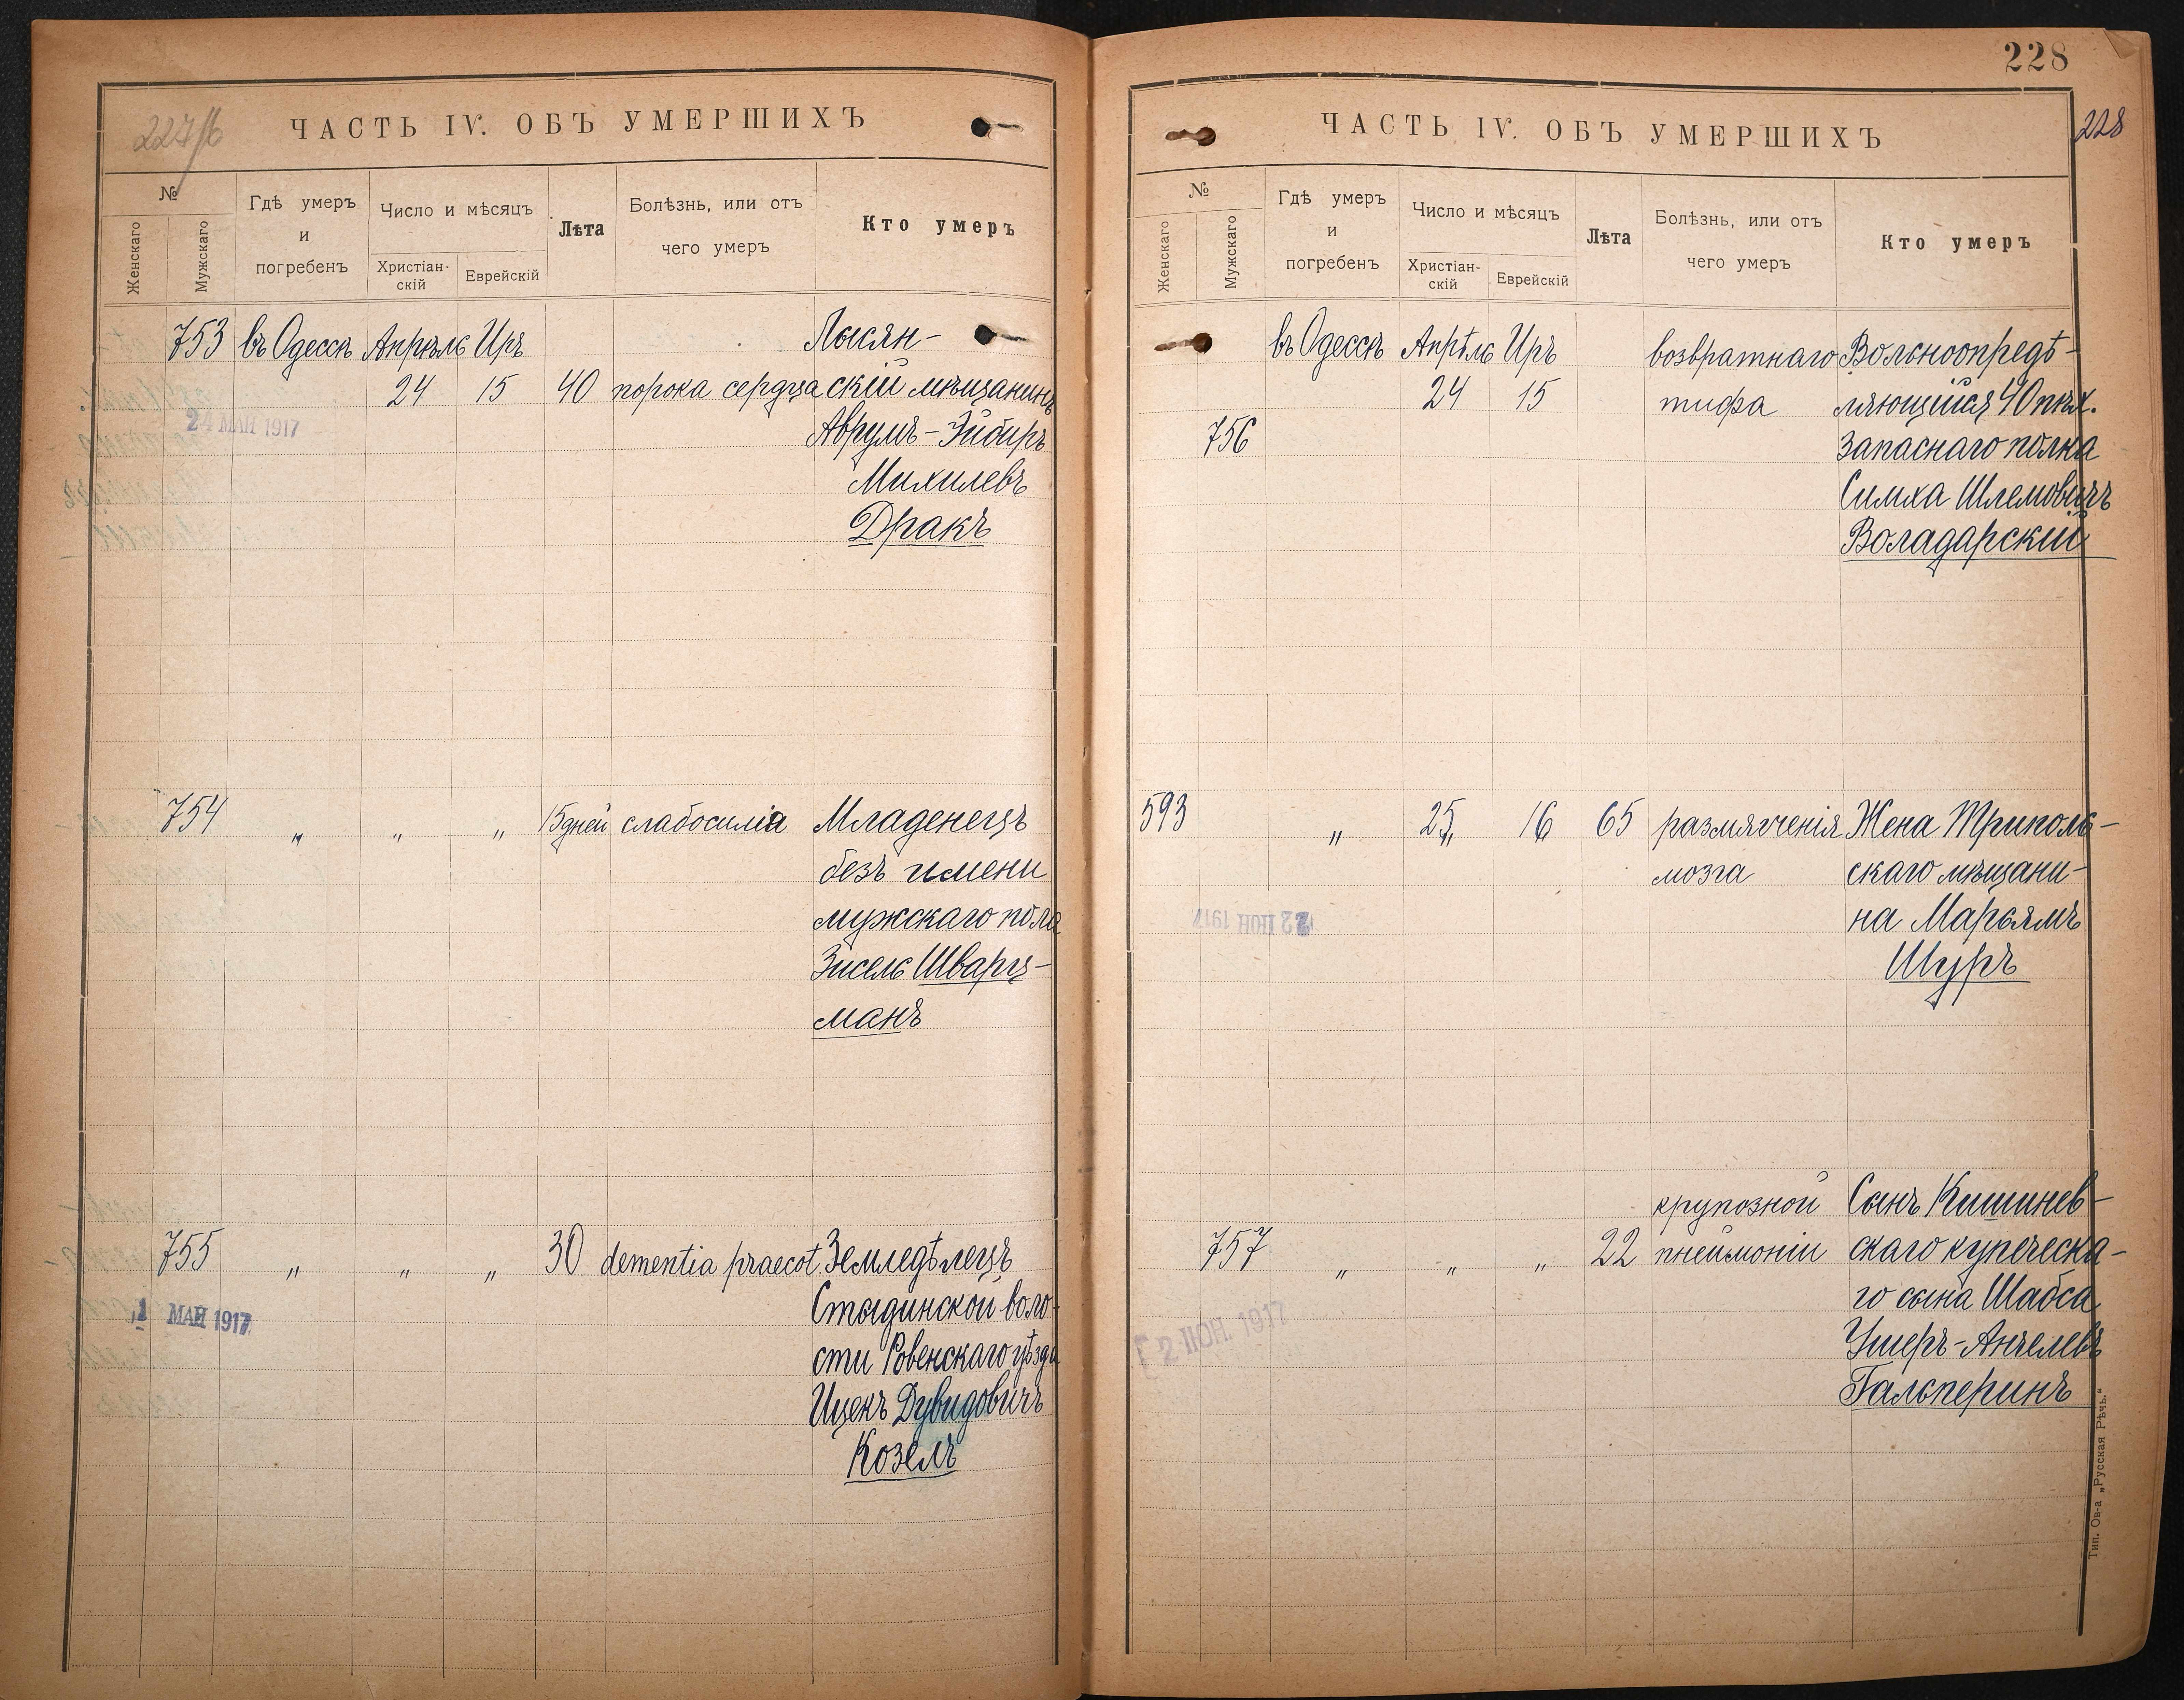 227/б
ЧАСТЬ IV. ОБЪ УМЕРШИХЪ
№
Женскаго
Мужскаго
Гдѣ умеръ
и
погребенъ
Число и мѣсяцъ
Христіан-
скій
Еврейскій
Лѣта
Болѣзнь, или отъ
чего умеръ
Кто умеръ
753 въ Одессѣ Апрѣль Иръ Лысян-
24 15 40 порока сердца скій мѣщанинъ
24 МАЙ 1917
Аврумъ-
Михилевъ
Дракъ
754 „ „ „ 15 дней слабосилія Младенецъ
безъ имени
мужскаго пола
Зисель Шварц-
манъ
755 „ „ „ 30 dementia praecot. Земледѣлецъ
Стыдинской воло-
1 МАЙ 1917
сти Ровенскаго уѣзда
Ицекъ Дувидовичъ
Козелъ
228
228
ЧАСТЬ IV. ОБЪ УМЕРШИХЪ
№
Женскаго
Мужскаго
Гдѣ умеръ
и
погребенъ
Число и мѣсяцъ
Христіан-
скій
Еврейскій
Лѣта
Болѣзнь, или отъ
чего умеръ
Кто умеръ
въ Одессѣ Апрѣль Иръ возвратнаго Вольноопредѣ-
24 15 тифа ляющійся 40 пѣх.
756 запаснаго полка
Симха Шлемовичъ
Воладарскій
593 „ 25 16 65 размягченія Жена Триполь-
мозга скаго мѣщани-
22 ІЮН 1917
на Марьямъ
Шуръ
крупозной Сынъ Кишинев-
757 „ „ „ 22 пнеймоніи скаго купеческа-
го сына Шабса
2 ІЮН. 1917
Ушеръ-Анчелевъ
Гальперинъ
Тип. Ов-а „Русская Рѣчь.“